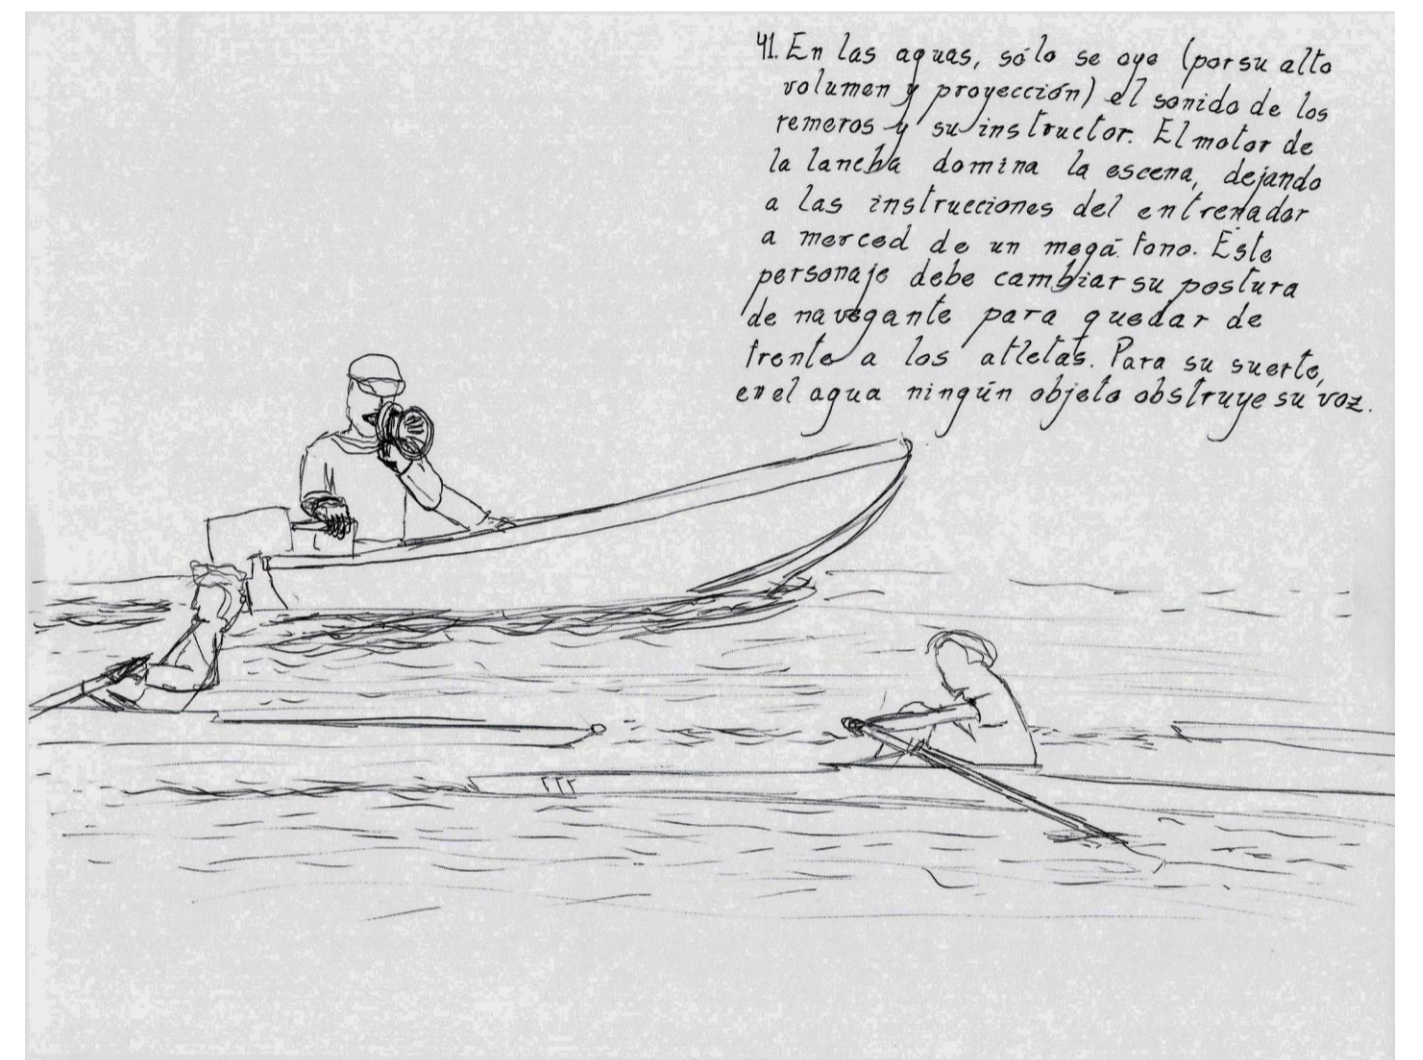 41. En las aguas, sólo se oye (por su alto
volumen y proyección) el sonido de los
remeros y su instructor. El motor de
la lancha domina la escena, dejando
a las instrucciones del entrenador
a merced de un megáfono. Este
personaje debe cambiar su postura
de navegante para quedar de
frente a los atletas. Para su suerte,
en el agua ningún objeto obstruye su voz.